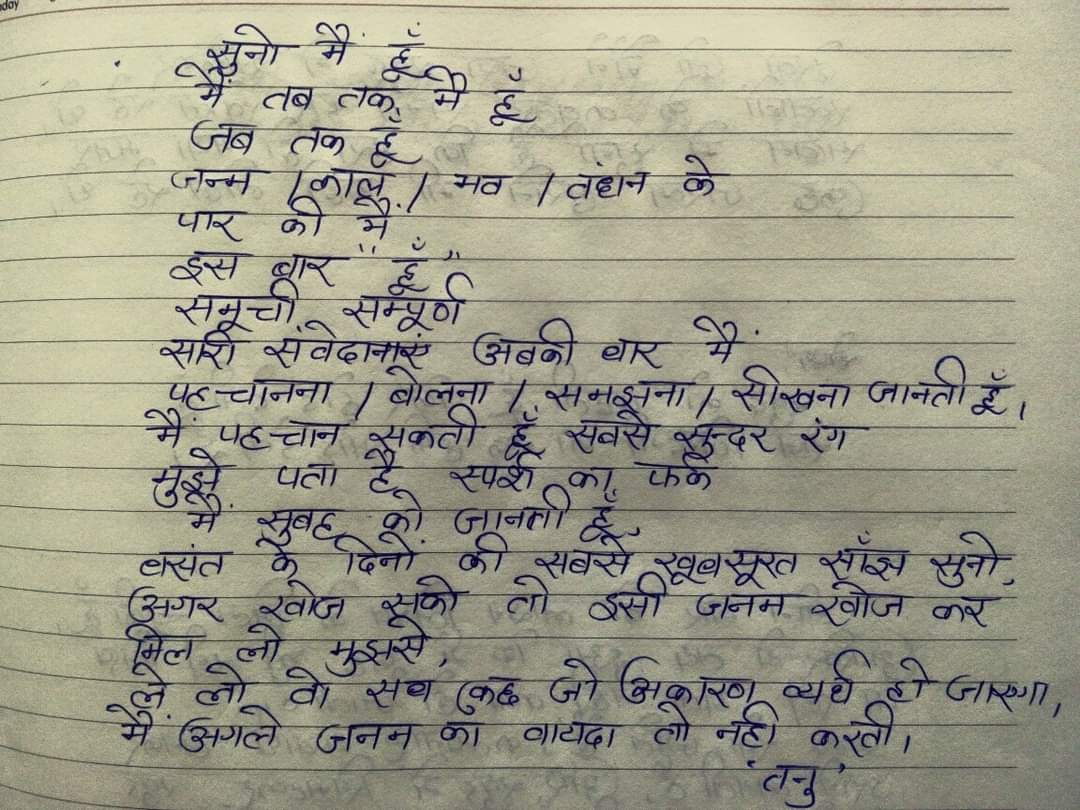 day
सुनो मैं हूँ
मैं तब तक, मैं हूँ
जब तक हूँ
जन्म / काल / भव / बंधन के
पार की मैं,
इस बार "हूँ"
समूची, सम्पूर्ण
सारी संवेदानाएं अबकी बार मैं
पहचानना / बोलना / समझना / सीखना जानती हूँ,
मैं पहचान सकती हूँ सबसे सुन्दर रंग
मुझे पता है स्पर्श का फर्क
मैं सुबह को जानती हूँ,
वसंत के दिनों की सबसे खूबसूरत साँझ सुनो,
अगर खोज सको तो इसी जनम खोज कर
मिल लो मुझसे,
ले लो वो सब कुछ जो अकारण व्यर्थ हो जाएगा,
मैं अगले जनम का वायदा तो नहीं करती।
'तनु'